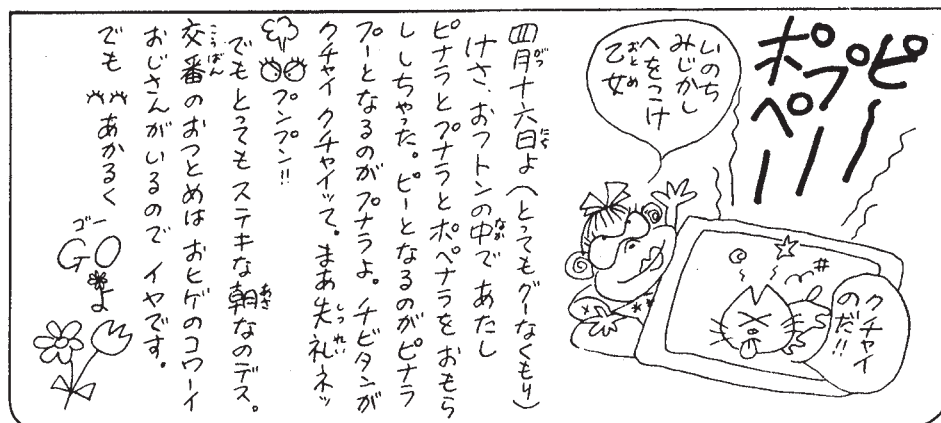 ピー
プー
ポペー
いのち
みじかし
へをこけ
乙女
おとめ
クチャイ
のだ!!
四月十六日よ(とってもグーなくもり)
がつ
にち
けさ、おフトンの中であたし
なか
ピナラとプナラとポペナラを おもら
ししちゃった。ピーとなるのがピナラ
プーとなるのがプナラよ。チビタンが
クチャイ クチャイッて。まあ失礼ネッ
しつれい
プンプン!!
でも とっても ステキな 朝なのデス。
あさ
交番のおつとめは おヒゲのコワーイ
こうばん
おじさんがいるので イヤです。
でも あかるく
GO
ゴー
よ